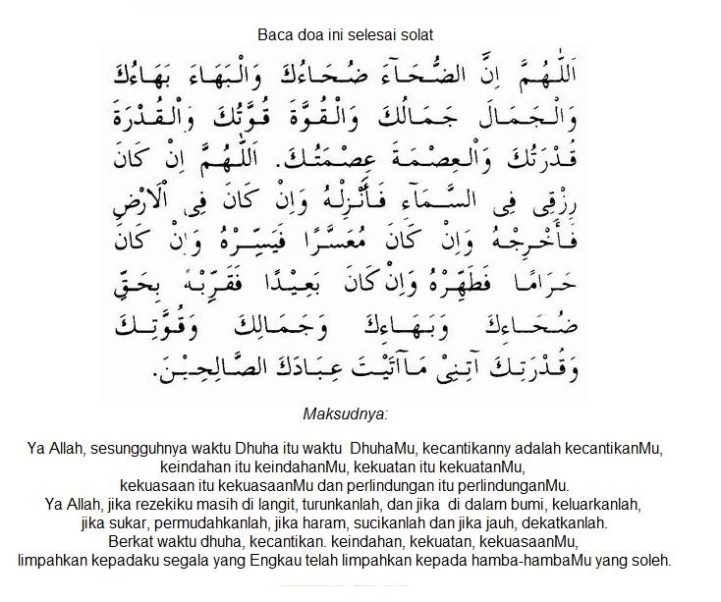 Baca doa ini selesai solat
اَللّٰهُمَّ اِنَّ الضُّحَآءَ ضُحَاءُكَ وَالْبَهَاءَ بَهَاءُكَ
وَالْجَمَالَ جَمَالُكَ وَالْقُوَّةَ قُوَّتُكَ وَالْقُدْرَةَ
قُدْرَتُكَ وَالْعِصْمَةَ عِصْمَتُكَ. اَللّٰهُمَّ اِنْ كَانَ
رِزْقِى فِى السَّمَآءِ فَأَنْزِلْهُ وَاِنْ كَانَ فِى اْلاَرْضِ
فَأَخْرِجْهُ وَاِنْ كَانَ مُعَسَّرًا فَيَسِّرْهُ وَاِنْ كَانَ
حَرَامًا فَطَهِّرْهُ وَاِنْ كَانَ بَعِيْدًا فَقَرِّبْهُ بِحَقِّ
ضُحَاءِكَ وَبَهَاءِكَ وَجَمَالِكَ وَقُوَّتِكَ
وَقُدْرَتِكَ آتِنِىْ مَاآتَيْتَ عِبَادَكَ الصَّالِحِيْنَ.
Maksudnya:
Ya Allah, sesungguhnya waktu Dhuha itu waktu DhuhaMu, kecantikanny adalah kecantikanMu,
keindahan itu keindahanMu, kekuatan itu kekuatanMu,
kekuasaan itu kekuasaanMu dan perlindungan itu perlindunganMu.
Ya Allah, jika rezekiku masih di langit, turunkanlah, dan jika di dalam bumi, keluarkanlah,
jika sukar, permudahkanlah, jika haram, sucikanlah dan jika jauh, dekatkanlah.
Berkat waktu dhuha, kecantikan. keindahan, kekuatan, kekuasaanMu,
limpahkan kepadaku segala yang Engkau telah limpahkan kepada hamba-hambaMu yang soleh.